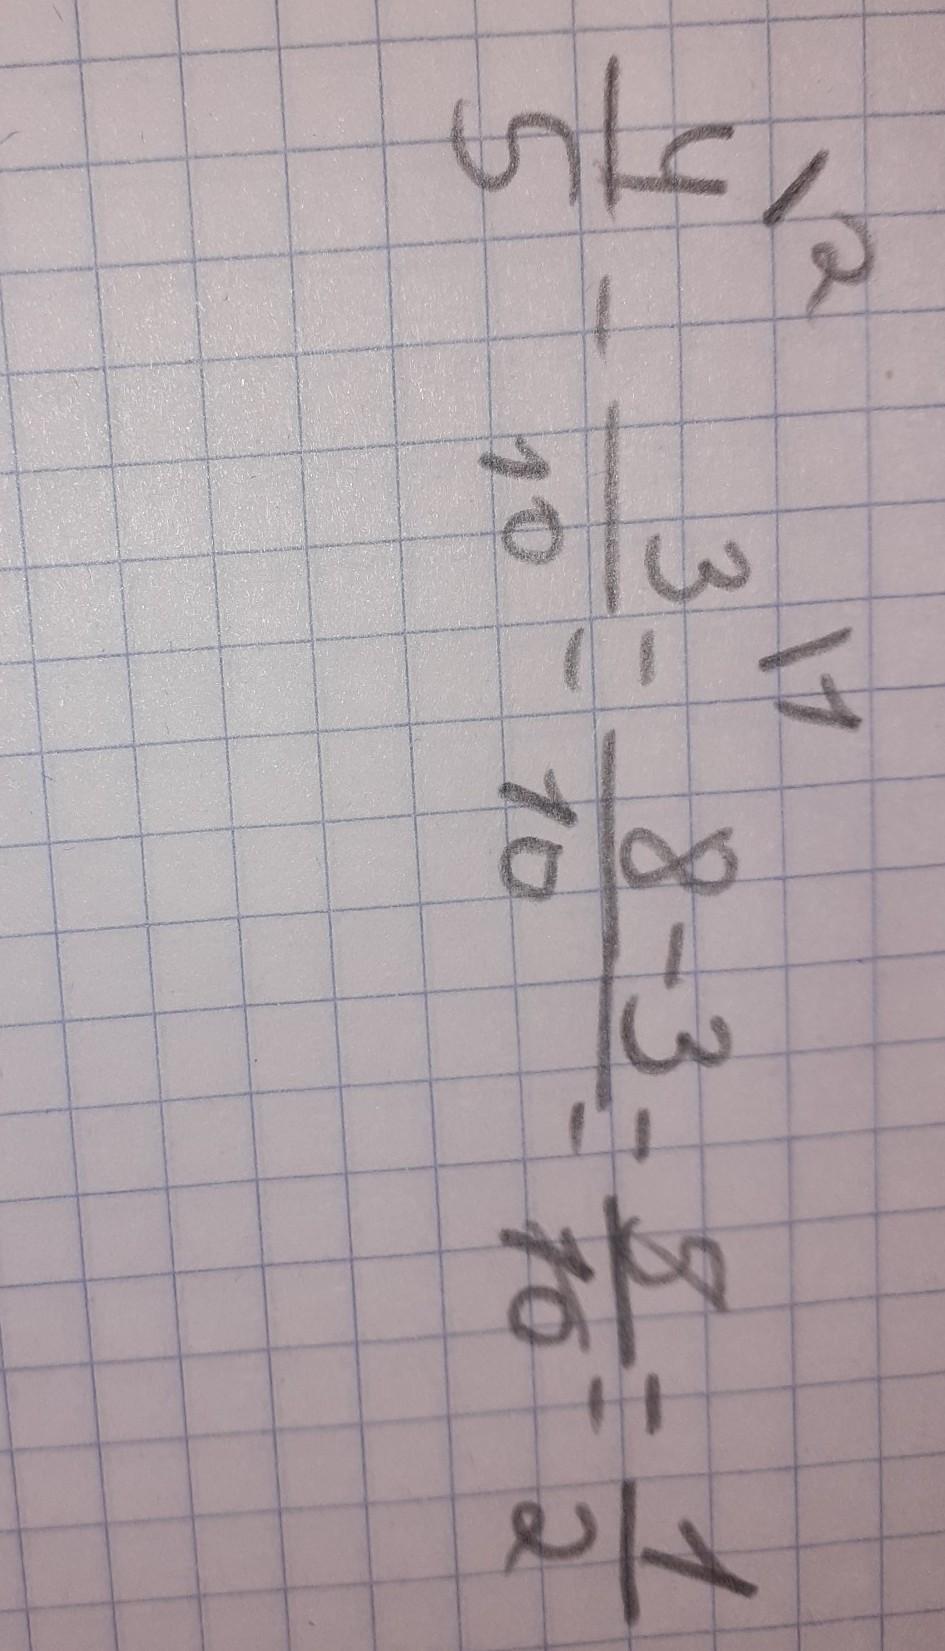 4/5 \2 - 3/10 \1 = 8-3/10 = 5/10 = 1/2